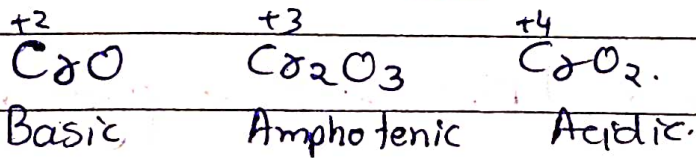 +2 +3 +4
CrO Cr2O3 CrO2.
Basic Amphotenic Acidic.